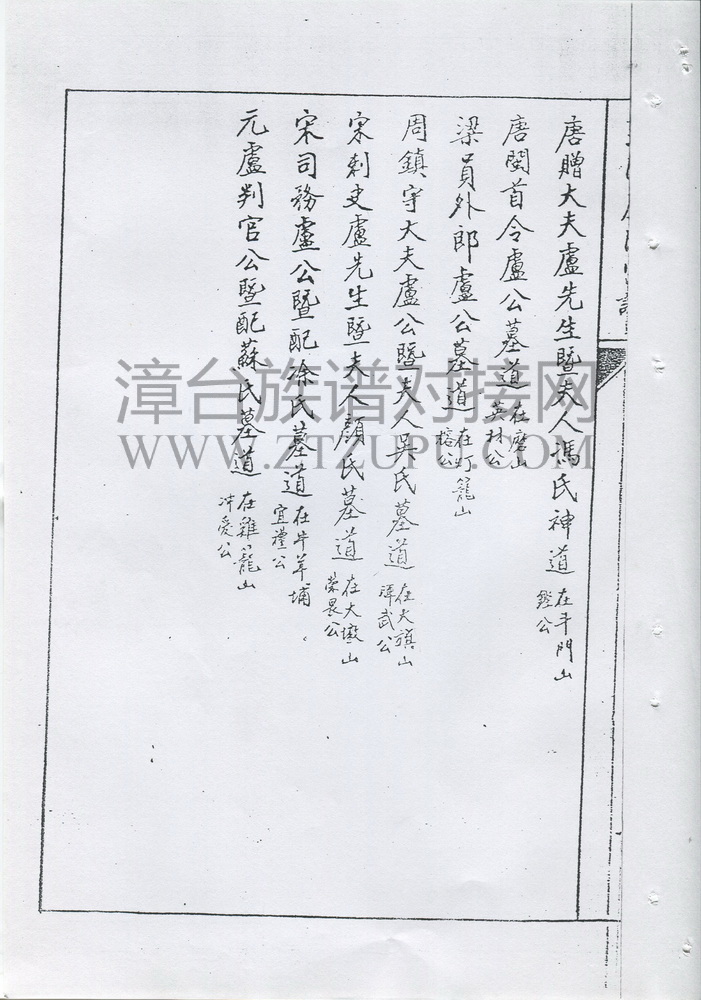 唐贈大夫盧先生暨夫人馮氏神道 在斗門山 公
唐閩首令盧公墓道 在磨山 英林公
梁員外郎盧公墓道 在灯籠山 榕公
周鎮守大夫盧公暨夫人吳氏墓道 在大旗山 潭武公
宋刺史盧先生暨夫人顏氏墓道 在大墩山 榮畏公
宋司務盧公暨配徐氏墓道 在牛羊埔 宜禮公
元盧判官公暨配蘇氏墓道 在雞籠山 冲愛公
漳台族谱对接网
WWW.ZTZUPU.COM